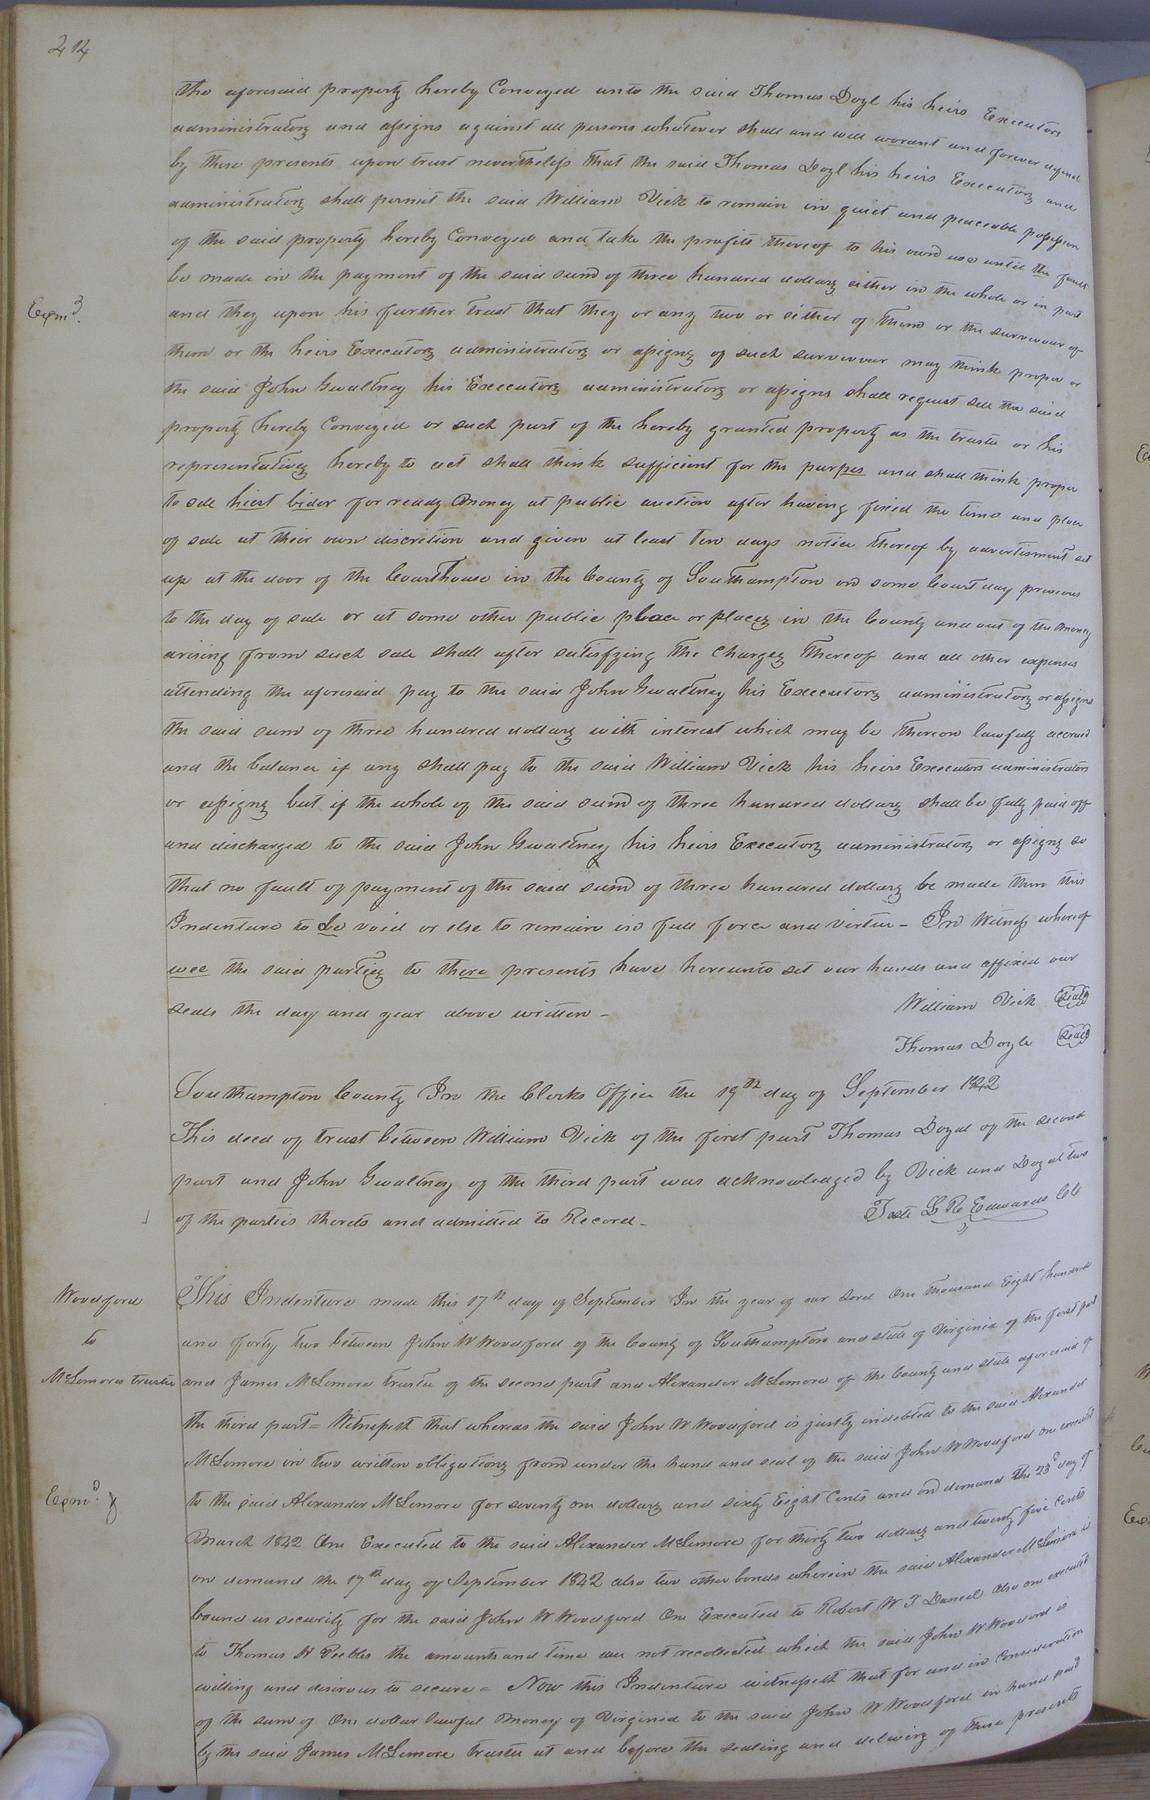 214
the aforesaid property hereby Conveyed unto the said Thomas Doyl his heirs Executors
administratorz and assigns against all persons whatever shall and will worant and forever defend
by these presents upon trust nevertheless that the said Thomas Doyl his heirs Executorz and
administratorz shall permit the said William Vick to remain in quiet and peaceable possession
of the said property hereby Conveyed and take the profits thereof to his own use until the fault
be made in the payment of the said sum of three hundred dollarz either in the whole or in part
Exmd.
and they upon his further trust that they or any two or either of them or the survivour of
them or the heirs Executorz administratorz or assignz of such survivour may think proper or
the said John Gwaltney his Executorz administratorz or assigns shall request sell the said
property hereby Conveyed or such part of the hereby granted property as the trustee or his
representativez hereby to act shall think sufficient for the purpes and shall think proper
to sell hiest bider for ready money at public auction after having fixed the time and place
of sale at their own discretion and given at least ten days notice thereof by advertisment set
up at the door of the Courthouse in the County of Southampton on some Court day previous
to the day of sale or at some other public place or placez in the County and out of the money
arising from such sale shall after satisfying the chargez thereof and all other expenses
attending the aforesaid pay to the said John Gwaltney his Executorz administratorz or assigns
the said sum of three hundred dollarz with interest which may be thereon lawfully accrued
and the balance if any shall pay to the said William Vick his heirs Executors administrators
or assignz but if the whole of the said sum of three hundred dollarz shall be fully paid off
and discharged to the said John Gwaltney his heirs Executorz administratorz or assignz so
that no fault of payment of the said sum of three hundred dollarz be made then this
Indenture to be void or else to remain in full force and virtue - In Witness whereof
wee the said partiez to there presents have hereunto set our hands and affixed our
seals the day and year above written -
William Vick (Seal)
Thomas Doyle (Seal)
Southampton County In the Clerks Office the 19th day of September 1842
This deed of trust between William Vick of the first part Thomas Doyal of the second
part and John Gwaltney of the third part was acknowledged by Vick and Doyal two
of the parties thereto and admitted to Record -
Teste L R Edwards Clk
Woodford
to
McLemores trustee
This Indenture made this 17th day of September In the year of our Lord One thousand Eight hundred
and forty two between John W Woodford of the County of Southampton and state of Virginia of the first part
and James McLemore trustee of the second part and Alexander McLemore of the County and state aforesaid of
the third part = Witnesseth that whereas the said John W Woodford is justly indebted to the said Alexander
McLemore in two written obligationz from under the hand and seal of the said John W Woodford one executed
Exmd.
to the said Alexander McLemore for seventy one dollarz and sixty Eight Cents and on demand the 23d day of
March 1842 One Executed to the said Alexander McLemore for thirty two dollarz and twenty five cents
on demand the 17th day of September 1842 also two other bonds wherein the said Alexander McLemore is
bound as security for the said John W Woodford One Executed to Robert W T Daniel also one executed
to Thomas H Peebles the amounts and time are not recollected which the said John W Woodford is
willing and desirous to secure = Now this Indenture witnesseth that for and in Consideration
of the sum of One dollar lawful money of Virginia to the said John W Woodford in hand paid
by the said James McLemore trustee at and before the sealing and delivery of these presents